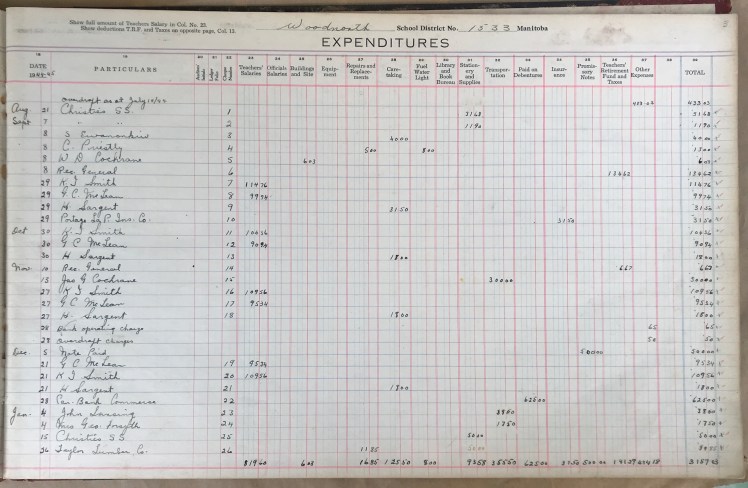 Show full amount of Teachers Salary in Col. No. 23.
Show deductions T.R.F. and Taxes on opposite page, Col. 13.
Woodnorth School District No. 1533 Manitoba
EXPENDITURES
DATE PARTICULARS Teachers' Salaries Officials Salaries Buildings and Site Equipment Repairs and Replacements Caretaking Fuel Water Light Library and Book Bureau Stationery and Supplies Transportation Paid on Debentures Insurance Promissory Notes Teachers' Retirement Fund and Taxes Other Expenses TOTAL
overdraft as at July
Aug 21 Christies S.S. 1 3168 3168
Sept 7 " " 2 1190 1190
8 S 3 4000 4000
8 C. Priestly 4 500 800 1300
8 W D Cochrane 5 603 603
8 Rec. General 6 13462 13462
29 K J Smith 7 11476 11476
29 G C. McLean 8 9974 9974
29 H. Sargent 9 3150 3150
29 Portage La P. Ins. Co. 10 3150 3150
Oct 30 K. J Smith 11 10436 10436
30 G C McLean 12 9094 9094
30 H Sargent 13 1800 1800
Nov 10 Rec. General 14 667 667
15 Jas G Cochrane 15 30000 30000
27 K J Smith 16 10956 10956
27 G C McLean 17 9534 9534
27 H. Sargent 18 1800 1800
28 Bank operating charge 65 65
28 overdraft charges 50 50
Dec. 5 Note Paid 50000 50000
21 G C McLean 19 9534 9534
21 K J Smith 20 10956 10956
21 H Sargent 21 1800 1800
28 Can. Bank Commerce 22 62500 62500
Jan. 4 John 23 3800 3800
4 Mrs Geo. Forsyth 24 1750 1750
15 Christies S S 25 5000 5000
26 Taylor Lumber Co. 26 1185
81960 603 1685 12550 800 9358 35550 62500 3150 50000